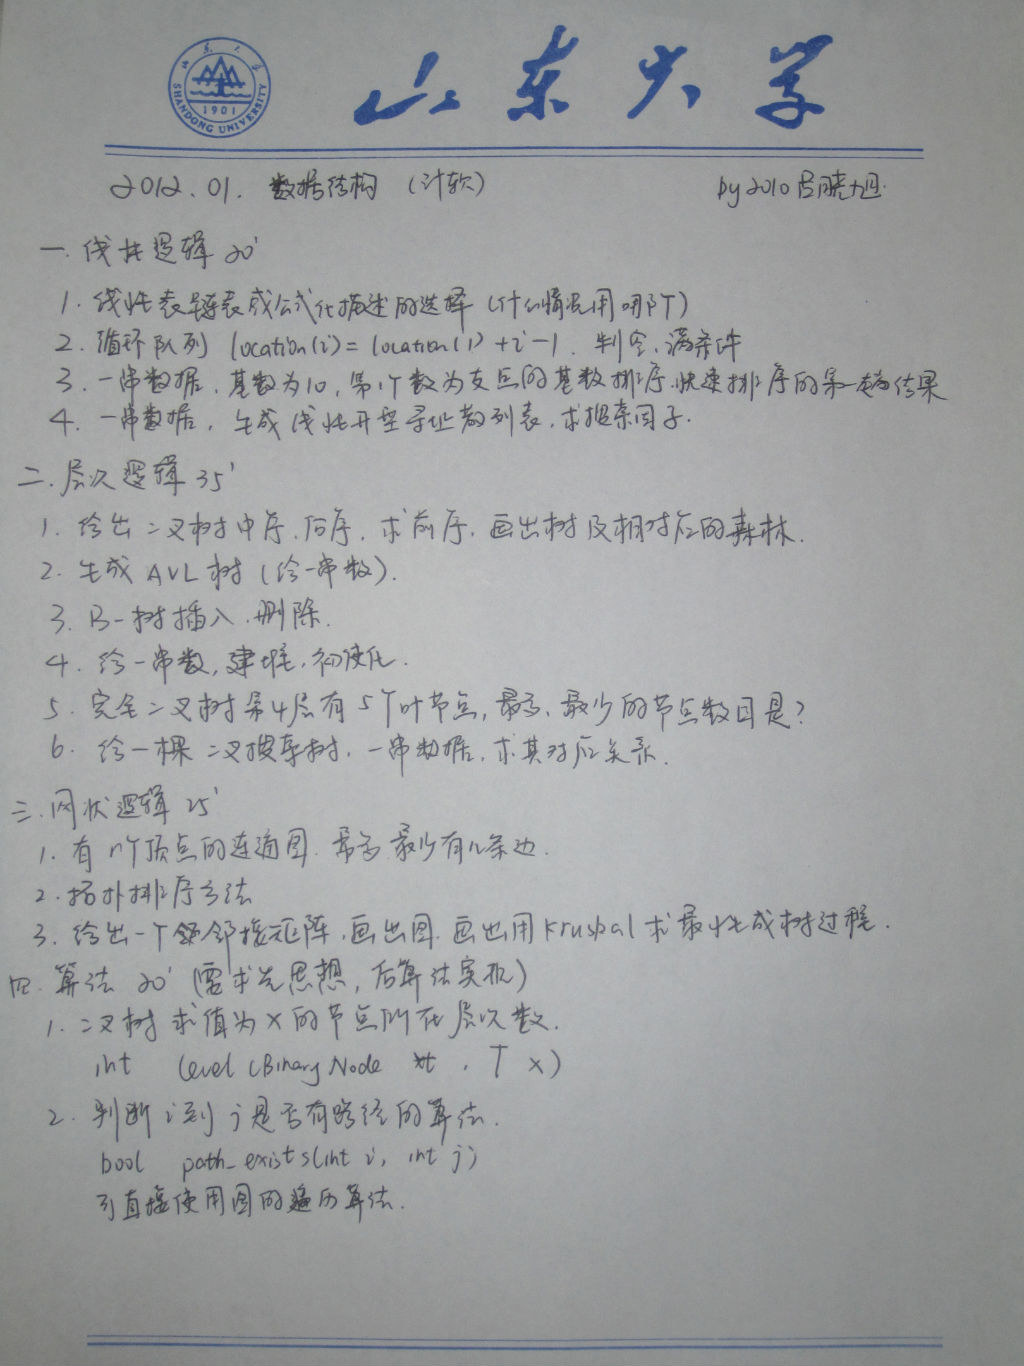 山东大学
SHANDONG UNIVERSITY
1901
2012.01. 数据结构 (计软) by 2010 吕晓旭.
一. 线性逻辑 20'
1. 线性表链表或公式化描述的选择 (什么情况用哪个)
2. 循环队列 location(i)= location(1)+i-1. 判空、满条件
3. 一串数据, 基数为10, 第1个数为支点的基数排序.快速排序的第一趟结果
4. 一串数据, 生成线性开型寻址散列表, 求搜索因子.
二. 层次逻辑 35'
1. 给出二叉树中序、后序, 求前序, 画出树及相对应的森林.
2. 生成 AVL 树 (给一串数).
3. B-树插入、删除.
4. 给一串数, 建堆, 初使化.
5. 完全二叉树第4层有5个叶节点, 最多、最少的节点数目是?
6. 给一棵二叉搜索树. 一串数据, 求其对应关系.
三. 网状逻辑 25'
1. 有n个顶点的连通图. 最多最少有几条边.
2. 拓扑排序方法
3. 给出一个邻接矩阵, 画出图. 画出用 Kruskal 求最小生成树过程.
四. 算法 20' (要求先思想, 后算法实现)
1. 二叉树求值为x的节点所在层次数.
int level (BinaryNode *t, T x)
2. 判断i到j是否有路径的算法.
bool path_exists(int i, int j)
可直接使用图的遍历算法.